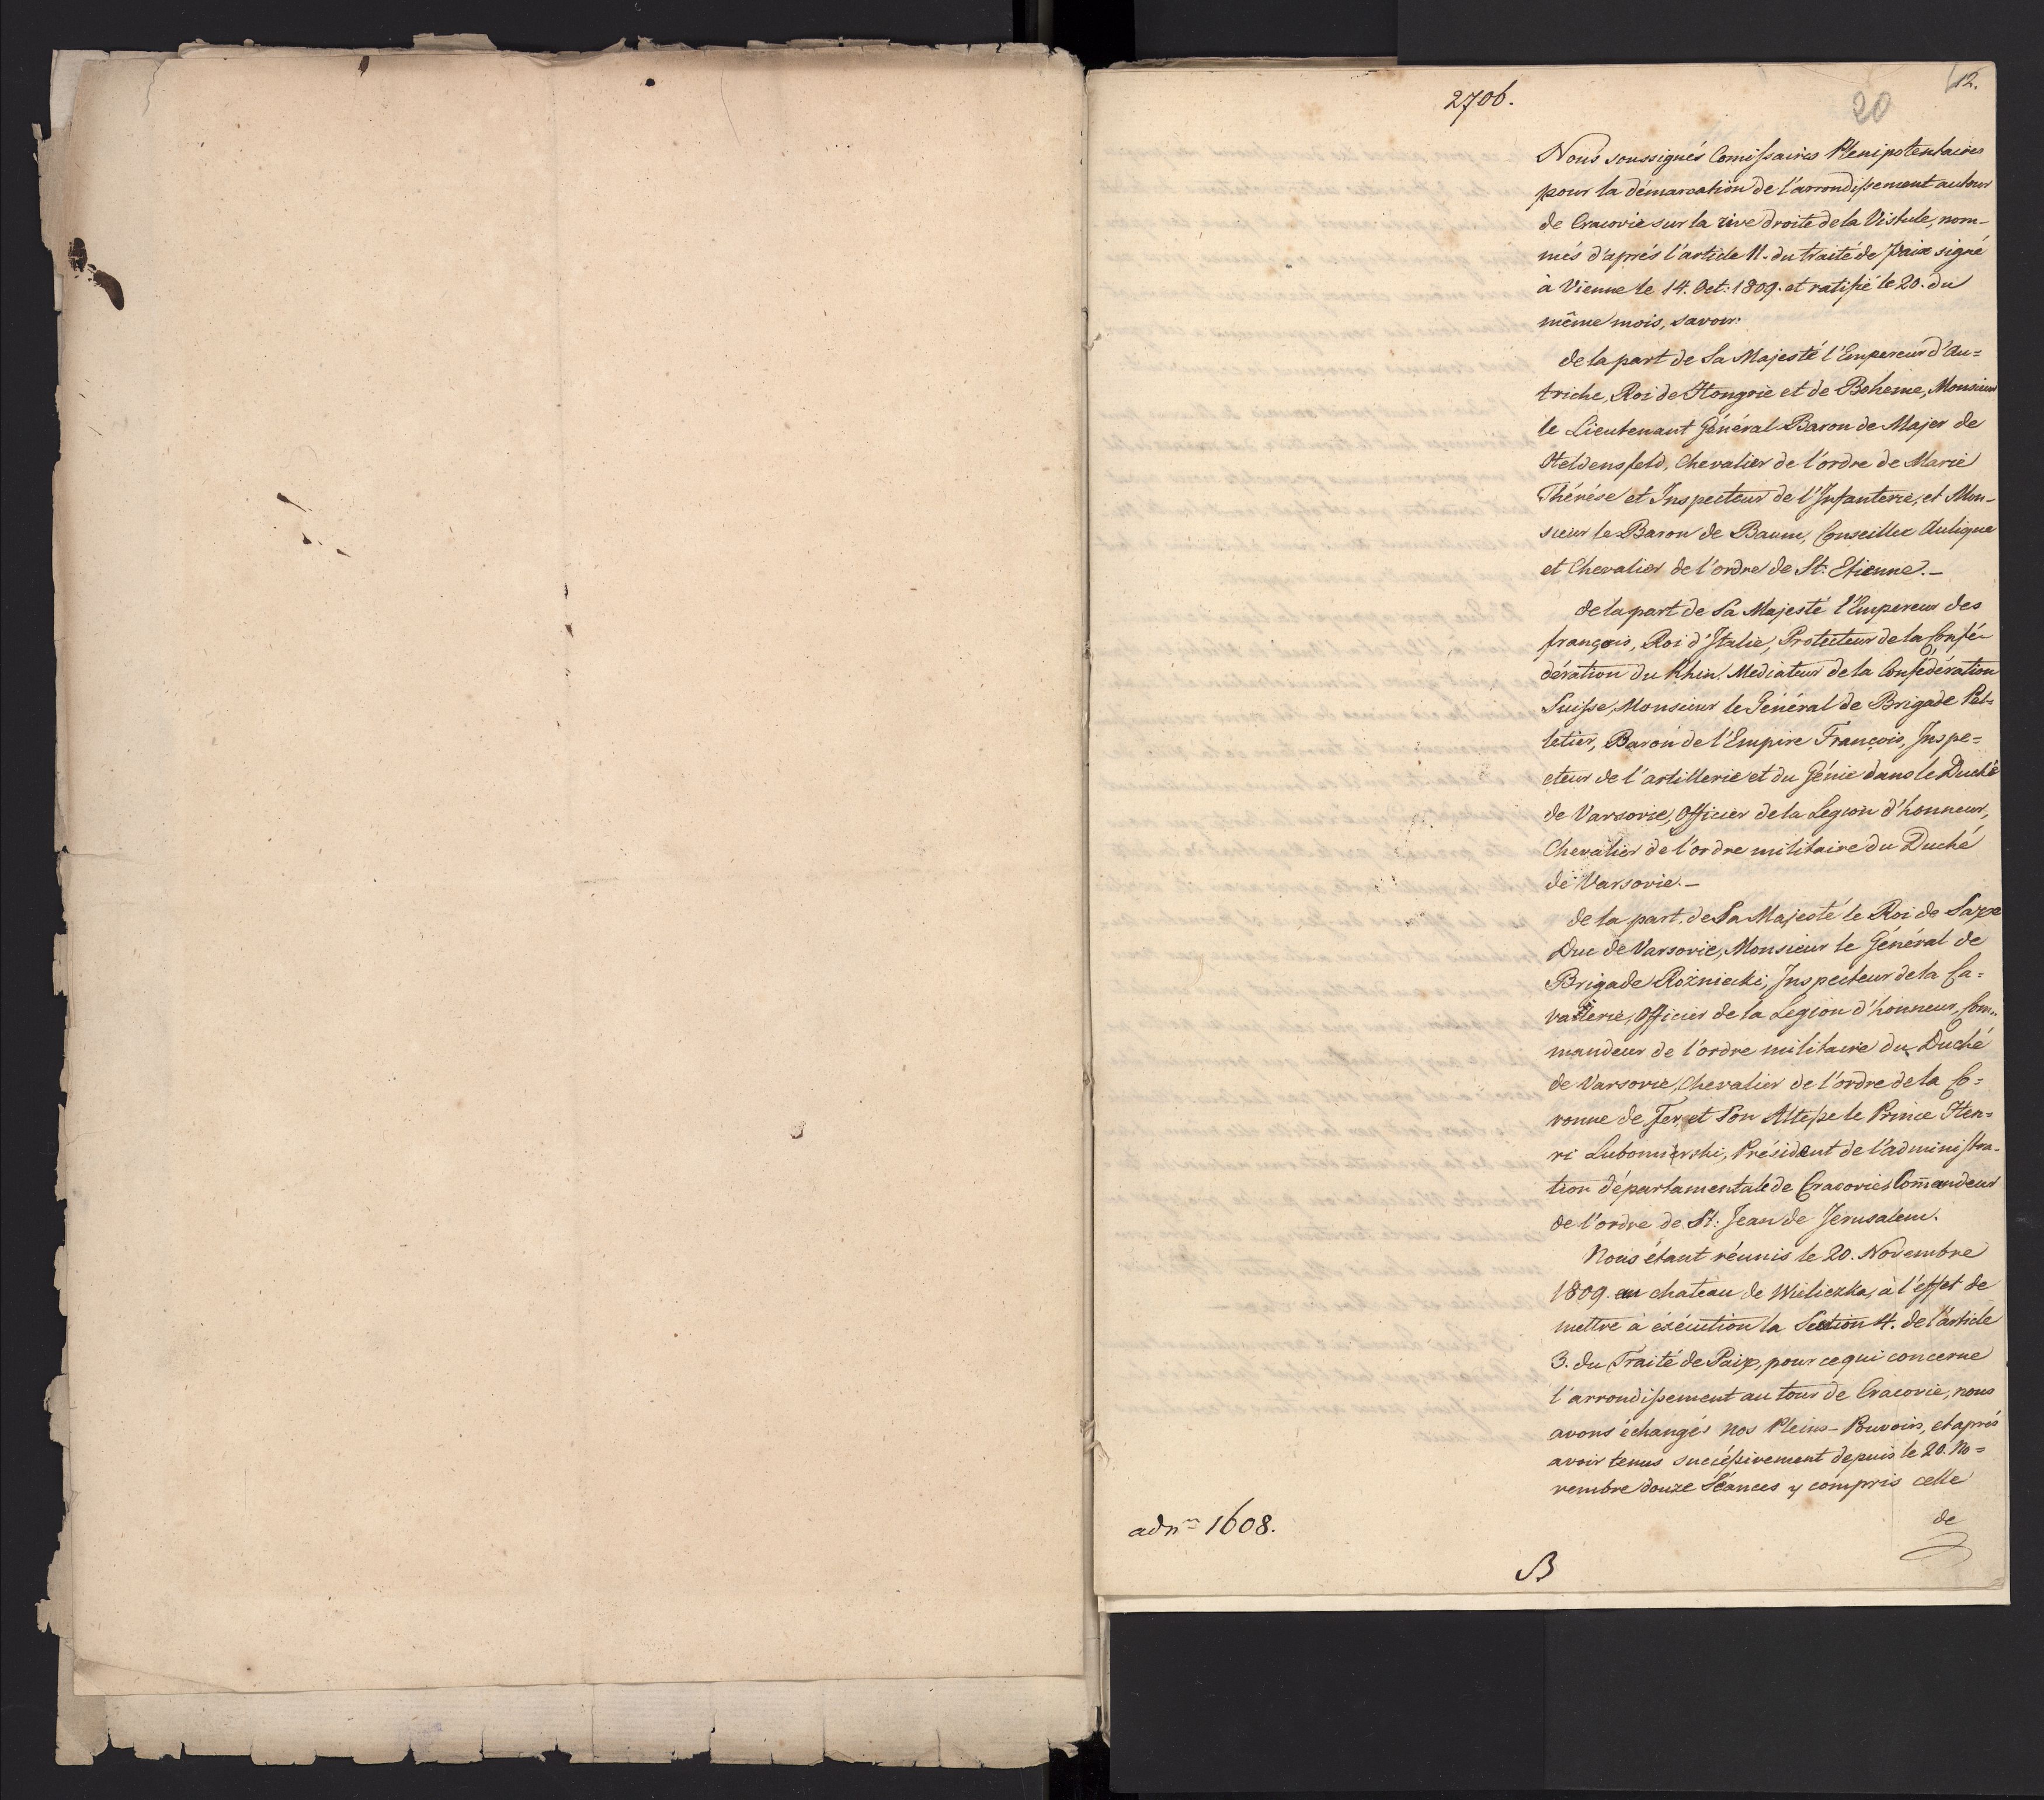 2706.
12.
20
Nous soussignés Comissaires Plenipotentaires
pour la démarcation de l'arrondissement autour
de Cracovie sur la rive droite de la Vistule, nom-
més d'aprés l'article 11. du traité de paix signé
à Vienne le 14. Oct: 1809. et ratifié le 20. du
même mois, savoir:
de la part de Sa Majesté l'Empereur d'Au=
triche, Roi de Hongrie et de Boheme, Monsieur
le Lieutenant Général Baron de Majer de
Heldensfeld, Chevalier de l'ordre de Marie
Thérése et Inspecteur de l'Infanterie, et Mon-
sieur le Baron de Baum, Conseiller Aulique
et Chevalier de l'ordre de St: Etienne.-
de la part de Sa Majesté l'Empereur des
français, Roi d'Italie, Protecteur de la Confé-
dération du Rhin, Mediateur de la Confédération
Suisse, Monsieur le Général de Brigade Pel-
letier, Baron de l'Empire François, Inspe=
cteur de l'artillerie et du Génie dans le Duché
de Varsovie, Officier de la Legion d'honneur,
Chevalier de l'ordre militaire du Duché
de Varsovie.-
de la part de Sa Majesté le Roi de Saxe
Duc de Varsovie, Monsieur le Général de
Brigade Rożniecki, Inspecteur de la Ca=
vallerie, Officier de la Legion d'honneur, Com-
mandeur de l'ordre militaire du Duché
de Varsovie, Chevalier de l'ordre de la Co=
ronne de Fer, et Son Altesse le Prince Hen=
ri Lubomirski, Président de l'administra-
tion départamentale de Cracovie, Com̄andeur
de l'ordre de St: Jean de Jerusalem.
Nous étant réunis le 20. Novembre
1809. au chateau de Wieliczka, à l'effet de
mettre à éxécution la Section 4. de l'article
3. du Traité de Paix, pour ce qui concerne
l'arrondissement au tour de Cracovie, nous
avons échangés nos Pleins-Pouvoirs, et aprés
avoir tenus succéssivement depuis le 20. No=
vembre douze Séances y compris celle
de
ad nm 1608.
B